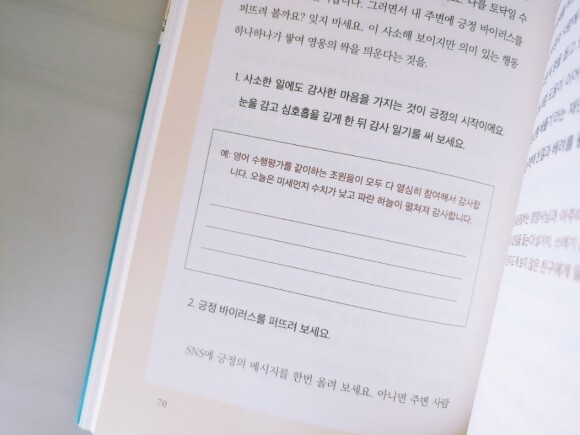 나를 토닥일 수
그러면서 내 주변에 긍정 바이러스를
퍼뜨려 볼까요? 잊지 마세요. 이 사소해 보이지만 의미 있는 행동
하나하나가 쌓여 영웅의 싹을 틔운다는 것을.
1. 사소한 일에도 감사한 마음을 가지는 것이 긍정의 시작이에요.
눈을 감고 심호흡을 깊게 한 뒤 감사 일기를 써 보세요.
예: 영어 수행평가를 같이하는 조원들이 모두 다 열심히 참여해서 감사합
니다. 오늘은 미세먼지 수치가 낮고 파란 하늘이 펼쳐져 감사합니다.
2. 긍정 바이러스를 퍼뜨려 보세요.
SNS에 긍정의 메시지를 한번 올려 보세요. 아니면 주변 사람
70